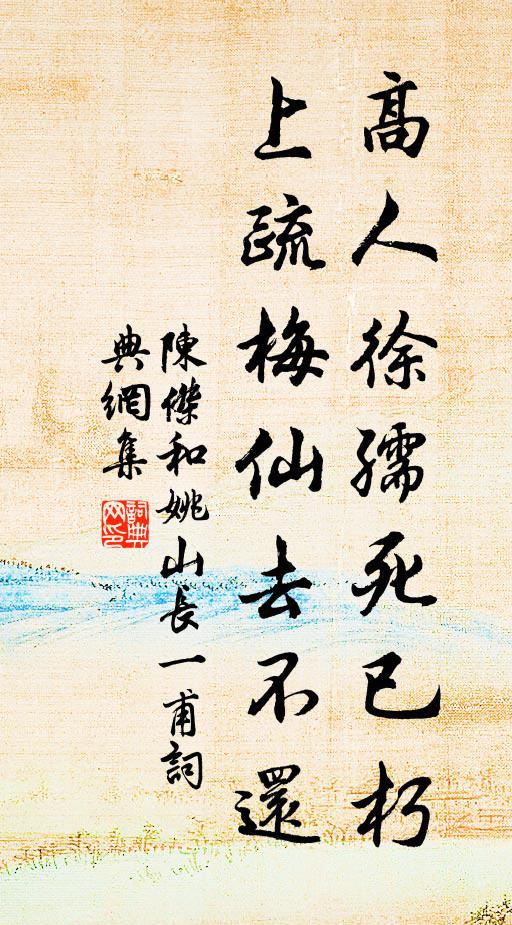 高人徐孺死已朽
上疏梅仙去不還
陳傑和姚山長一甫詞
典網集
詞典
网印